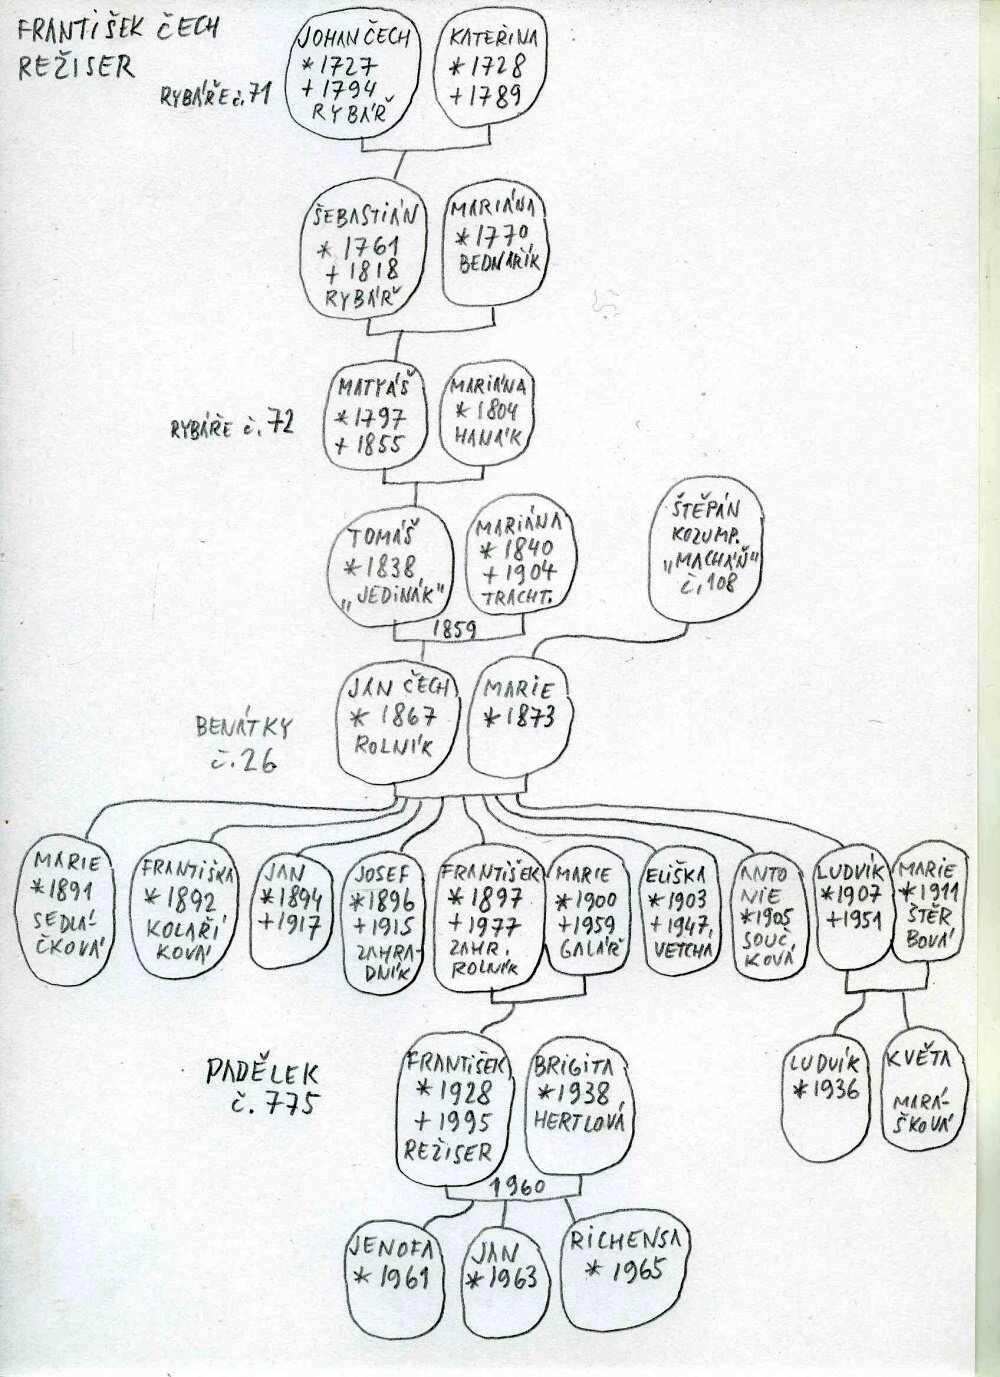 FRANTIŠEK ČECH
REŽISER
RYBÁŘE č. 71
JOHAN ČECH
* 1727
+ 1794
RYBÁŘ
KATEŘINA
* 1728
+ 1789
ŠEBASTIÁN
* 1761
+ 1818
RYBÁŘ
MARIÁNA
* 1770
BEDNAŘÍK
RYBÁŘE č. 72
MATYÁŠ
* 1797
+ 1855
MARIÁNA
* 1804
HANÁK
TOMÁŠ
* 1838
„JEDINÁK"
MARIÁNA
* 1840
+ 1904
TRACHT.
ŠTĚPÁN
KOZUMP.
„MACHÁŇ"
č. 108
1859
BENÁTKY
č. 26
JAN ČECH
* 1867
ROLNÍK
MARIE
* 1873
MARIE
* 1891
SEDLÁ-
ČKOVÁ
FRANTIŠKA
* 1892
KOLAŘÍ
KOVÁ
JAN
* 1894
+ 1917
JOSEF
* 1896
+ 1915
ZAHRA-
DNÍK
FRANTIŠEK
* 1897
+ 1977
ZAHR.
ROLNÍK
MARIE
* 1900
+ 1959
GALÁŘ
ELIŠKA
* 1903
+ 1947,
VETCHÁ
ANTO
NIE
* 1905
SOUČ.
KOVÁ
LUDVÍK
* 1907
+ 1951
MARIE
* 1911
ŠTĚR
BOVÁ
PADĚLEK
č. 775
FRANTIŠEK
* 1928
+ 1995
REŽISER
BRIGITA
* 1938
HERTLOVÁ
LUDVÍK
* 1936
KVĚTA
MARÁ-
ŠKOVÁ
1960
JENOFA
* 1961
JAN
* 1963
RICHENSA
* 1965